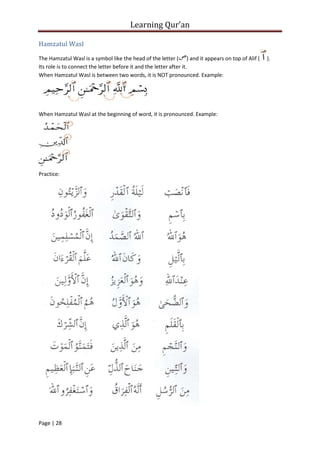 Learning Qur'an
Hamzatul Wasl
The Hamzatul Wasl is a symbol like the head of the letter (ص) and it appears on top of Alif ( ٱ ).
Its role is to connect the letter before it and the letter after it.
When Hamzatul Wasl is between two words, it is NOT pronounced. Example:
بِسْمِ ٱللَّهِ ٱلرَّحْمَـٰنِ ٱلرَّحِيمِ
When Hamzatul Wasl at the beginning of word, it is pronounced. Example:
ٱلْحَمْدُ
ٱلدِّينِ
ٱلرَّحْمَـٰنِ
Practice:
فَٱنصَبْ لَيْلَةُ ٱلْقَدْرِ وَٱلزَّيْتُونِ
بِٱسْمِ وَٱلتَّقْوَىٰ ٱلْغَفُورُ ٱلْوَدُودُ
وَهُوَ ٱللَّهُ ٱللَّهُ ٱلصَّمَدُ إِنَّ ٱلْمُسْلِمِينَ
بِٱلَّيْلِ وَكَانَ ٱللَّهُ عَلَّمَ ٱلْقُرْءَانَ
عِندَ ٱللَّهِ وَهُوَ ٱلْعَزِيزُ إِنَّ ٱلْأَوَّلِينَ
وَٱلضُّحَىٰ هُوَ ٱلْأَوَّلُ هُمُ ٱلْمُفْلِحُونَ
بِٱلْقَلَمِ هُوَ ٱلَّذِي إِنَّ ٱلشِّرْكَ
وَٱلنَّجْمِ مِنَ ٱلَّذِينَ فَتَمَنَّوُا ٱلْمَوْتَ
وَٱلتِّينِ جَنَاحَ ٱلذُّلِّ عَنِ ٱلنَّبَإِ ٱلْعَظِيمِ
مِنَ ٱلرُّسُلِ أَنَّهُ ٱلْفِرَاقُ وَٱسْتَغْفِرُوا ٱللَّهَ
Page | 28